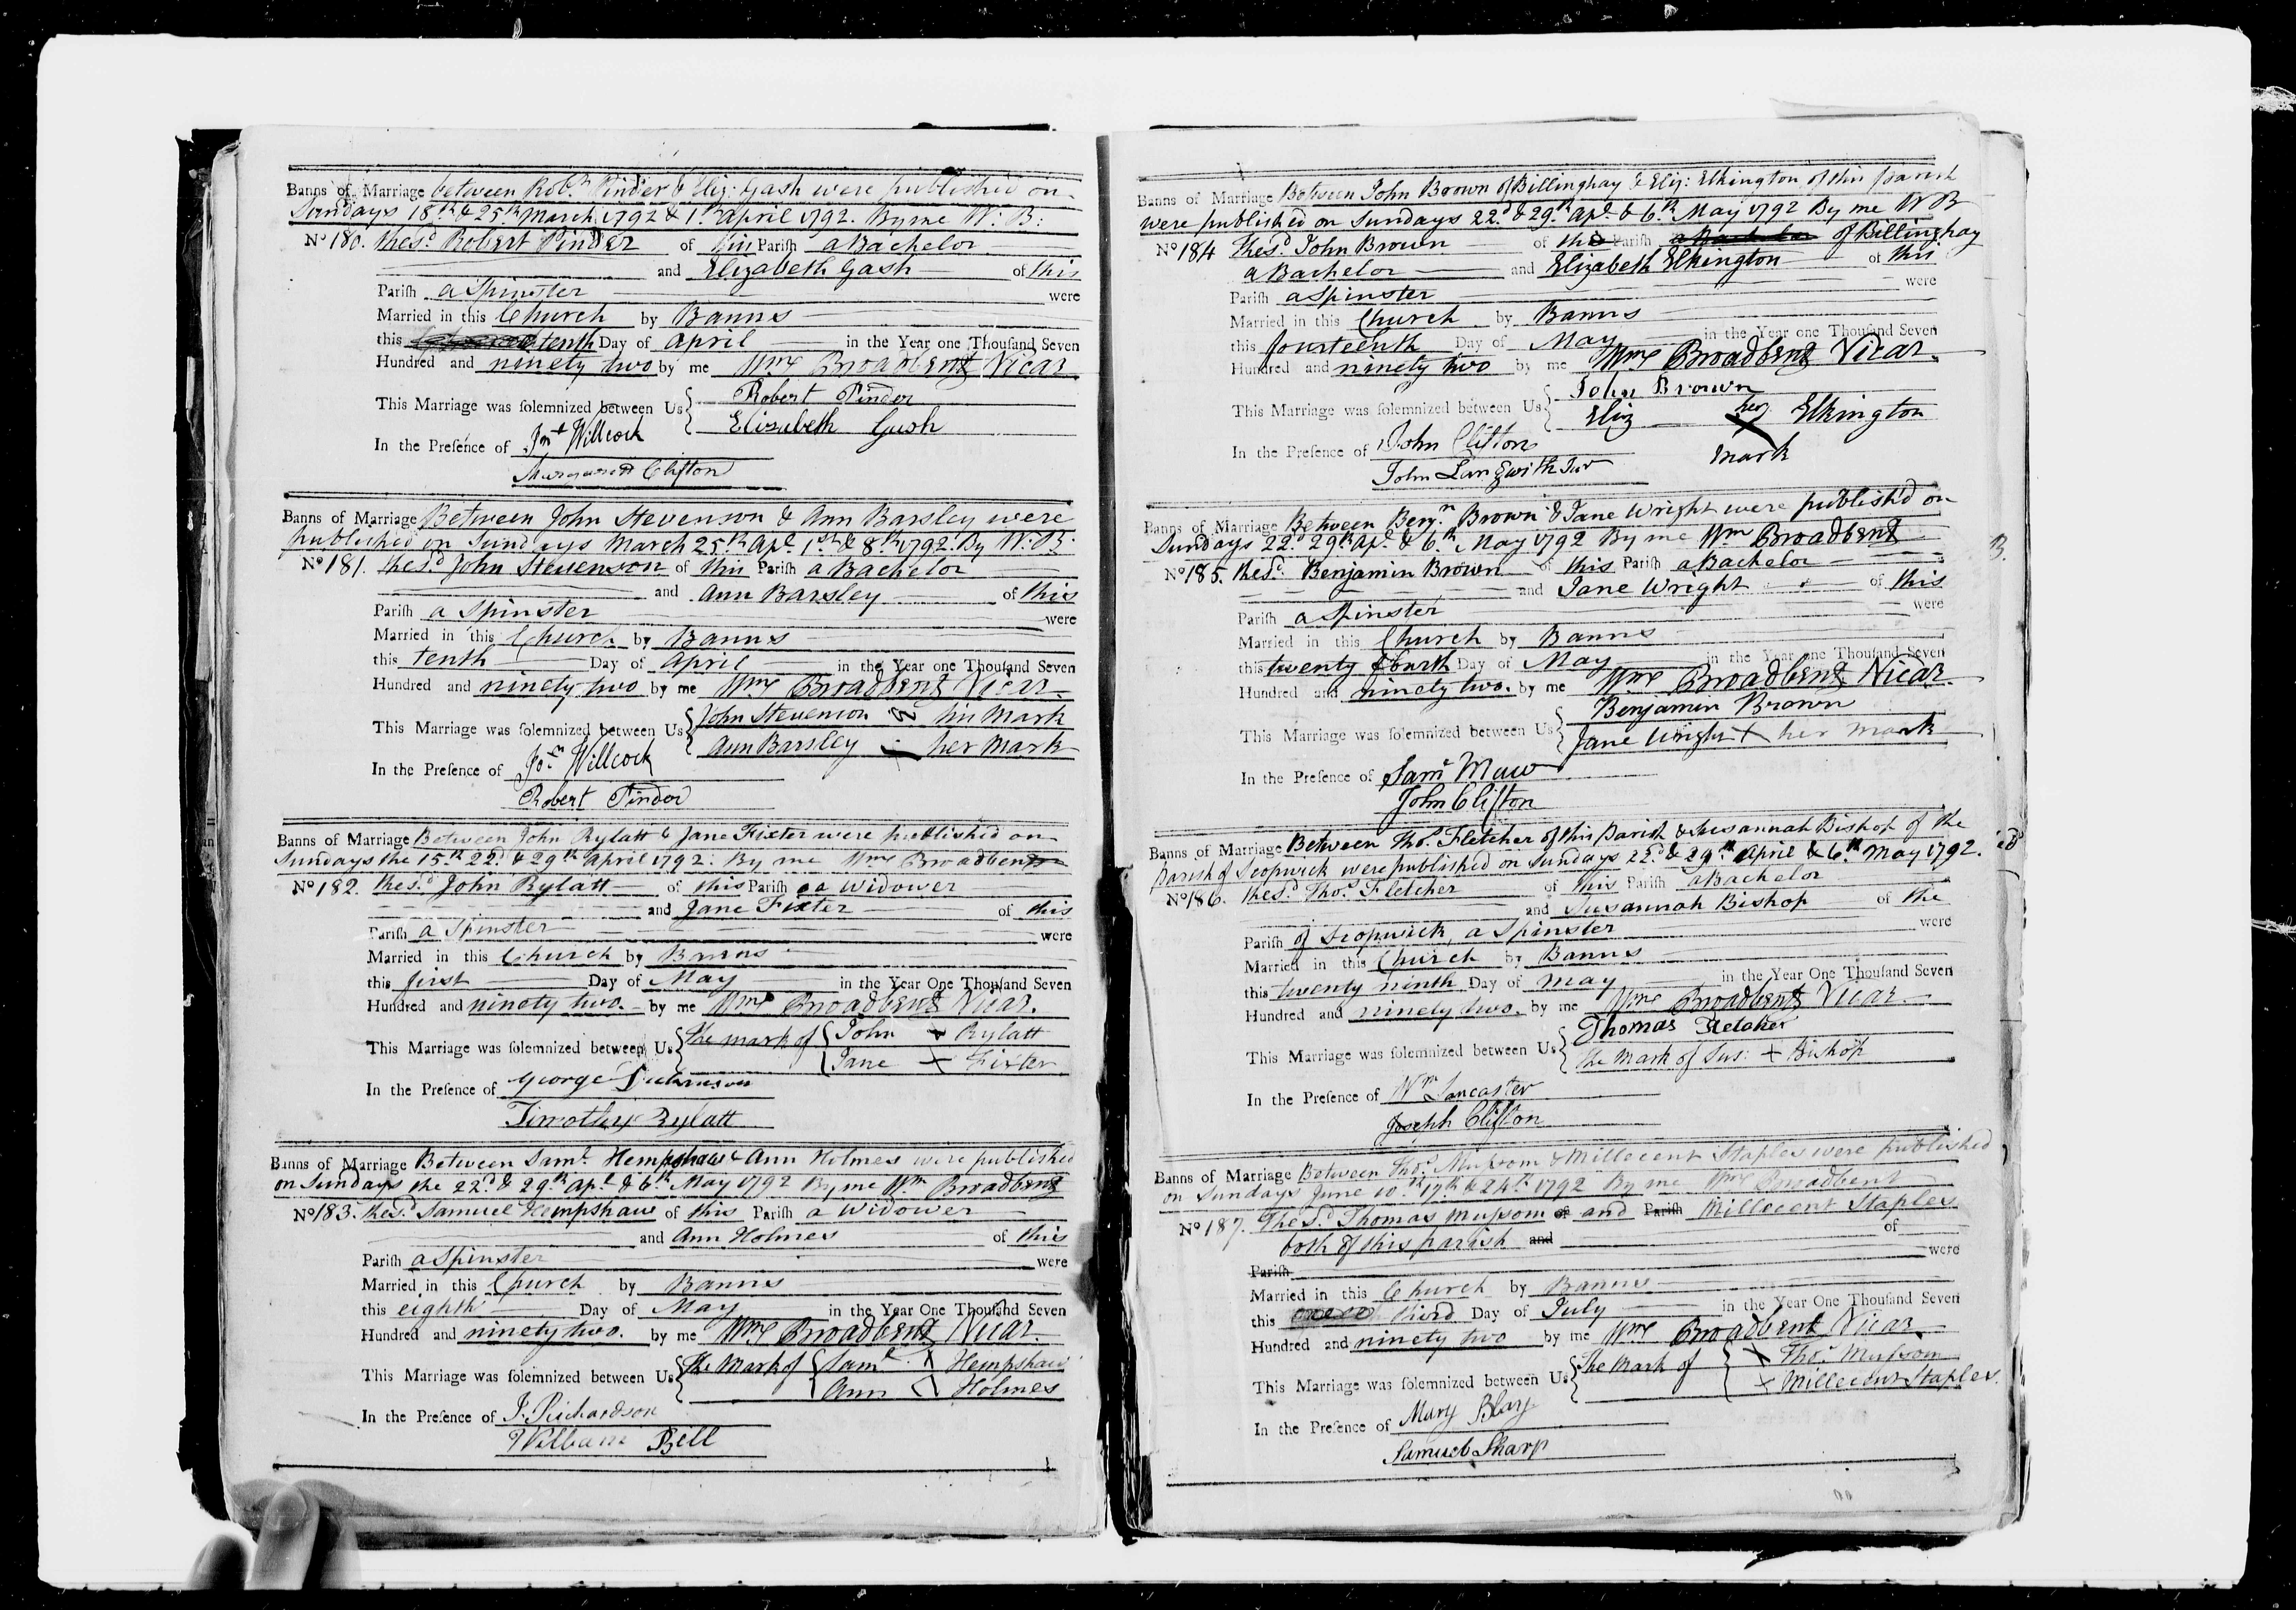 Banns of Marriage between Robt. Pinder & Eliz: Gash were published on
Sundays 18th & 25th March 1792 & 1st April 1792. By me W: B:
No 180. The sd Robert Pinder of this Parish a Bachelor
and Elizabeth Gash of this
Parish a Spinster were
Married in this Church by Banns
this tenth Day of April in the Year one Thousand Seven
Hundred and ninety two by me Wm Broadbent Vicar
This Marriage was solemnized between Us Robert Pinder
Elizabeth Gash
In the Presence of Jno Willcock
Margarett Clifton
Banns of Marriage Between John Stevenson & Ann Barsley were
published on Sundays March 25th Apl. 1st & 8th 1792. By W: B:
No 181. The sd John Stevenson of this Parish a Bachelor
and Ann Barsley of this
Parish a Spinster were
Married in this Church by Banns
this tenth Day of April in the Year one Thousand Seven
Hundred and ninety two by me Wm Broadbent Vicar.
This Marriage was solemnized between Us John Stevenson his Mark
Ann Barsley her Mark
In the Presence of Jno Willcock
Robert Pinder
Banns of Marriage Between John Rylatt & Jane Fixter were published on
Sundays the 15th 22d & 29th April 1792: By me Wm Broadbent
No 182. The sd John Rylatt of this Parish a Widower
and Jane Fixter of this
Parish a Spinster were
Married in this Church by Banns
this first Day of May in the Year One Thousand Seven
Hundred and ninety two. by me Wm Broadbent Vicar.
This Marriage was solemnized between Us The mark of John + Rylatt
Jane + Fixter
In the Presence of George Dickinson
Timothy Rylatt
Banns of Marriage Between Saml. Hempshaw & Ann Holmes were published
on Sundays the 22d & 29th Apl & 6th May 1792 By me Wm Broadbent
No 183. The sd Samuel Hempshaw of this Parish a Widower
and Ann Holmes of this
Parish a Spinster were
Married in this Church by Banns
this eighth Day of May in the Year One Thousand Seven
Hundred and ninety two. by me Wm Broadbent Vicar.
This Marriage was solemnized between Us The Mark of Saml X Hempshaw
Ann X Holmes
In the Presence of J. Richardson
William Bell
Banns of Marriage Between John Brown of Billinghay & Eliz: Elkington of this parish
were published on Sundays 22d & 29th Apl. & 6th May 1792 By me W B
No 184 The sd John Brown of the Parish a Bachelor of Billinghay
a Bachelor and Elizabeth Elkington of this
Parish a Spinster were
Married in this Church by Banns
this fourteenth Day of May in the Year one Thousand Seven
Hundred and ninety two by me Wm Broadbent Vicar.
This Marriage was solemnized between Us John Brown
Eliz her X Elkington
mark
In the Presence of John Clifton
John Langwith Jur
Banns of Marriage Between Benj.n Brown & Jane Wright were publish'd on
Sundays 22d 29th Apl. & 6th May 1792 By me Wm Broadbent
No 185. The sd Benjamin Brown of this Parish a Bachelor
and Jane Wright of this
Parish a Spinster were
Married in this Church by Banns
this twenty fourth Day of May in the Year one Thousand Seven
Hundred and ninety two. by me Wm Broadbent Vicar.
This Marriage was solemnized between Us Benjamin Brown
Jane Wright + her mark
In the Presence of Saml Maw
John Clifton
Banns of Marriage Between Thos. Fletcher of this Parish & Susannah Bishop of the
Parish of Scopwick were published on Sundays 22d & 29th April & 6th May 1792.
No 186. The sd Thos. Fletcher of this Parish a Bachelor
and Susannah Bishop of the
Parish of Scopwick, a Spinster were
Married in this Church by Banns
this twenty ninth Day of May in the Year One Thousand Seven
Hundred and ninety two. by me Wm Broadbent Vicar
This Marriage was solemnized between Us Thomas Fletcher
The Mark of Sus: + Bishop
In the Presence of Wm Lancaster
Joseph Clifton
Banns of Marriage Between Thos. Mussom & Millecent Staples were published
on Sundays June 10th 17th & 24th 1792 By me Wm Broadbent
No 187. The Sd Thomas Mussom of and Parish Millecent Staples
both of this parish and of
Parish were
Married in this Church by Banns
this third Day of July in the Year One Thousand Seven
Hundred and ninety two by me Wm Broadbent Vicar.
This Marriage was solemnized between Us The Mark of X Thos. Mussom
X Millecent Staples.
In the Presence of Mary Blay
Samuel Sharp